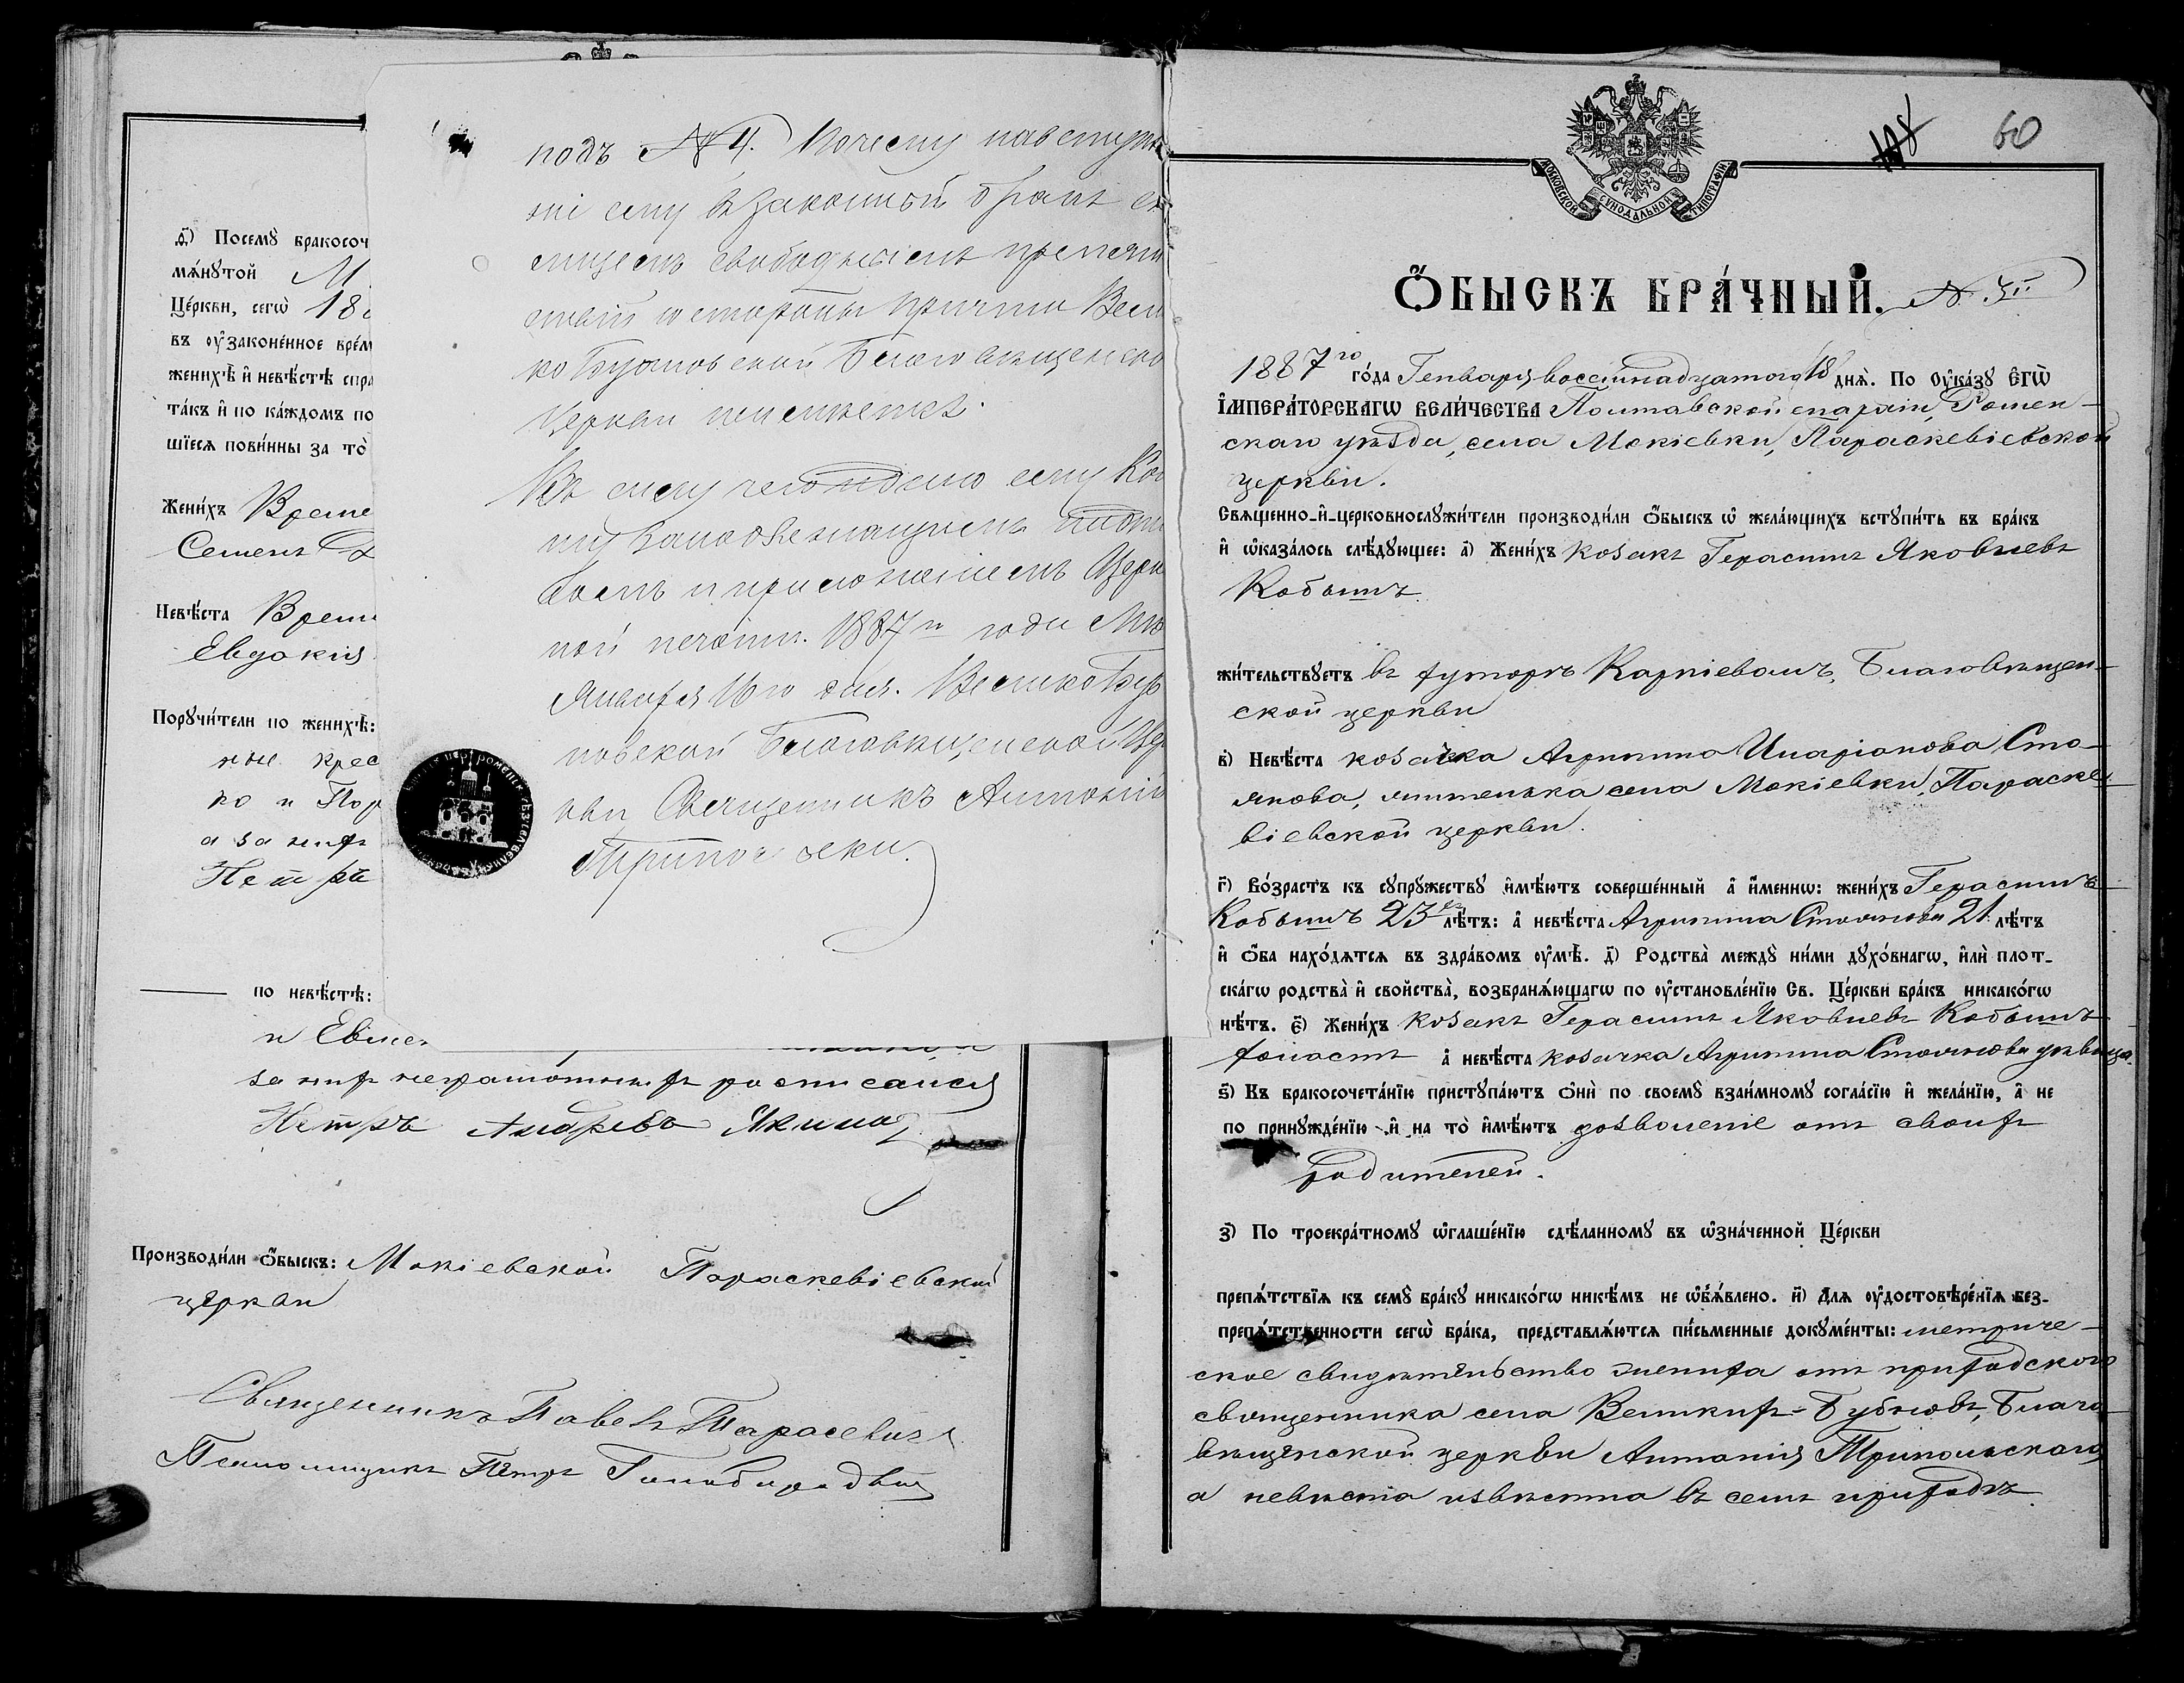 д҃) Посемꙋ̀ бракосоч
мѧ́нꙋтой М
Це́ркви, сегѡ̀ 18
въ ᲂу҆законе́нное вре́м
женихѣ̀ и҆ невѣ́стѣ спра
та́къ и҆ по ка́ждомъ по
шїеся пови́нны за то̀
Жени́хъ Време
Семенъ
Невѣ́ста Време
Евдокия
Порꙋчи́тели по женихѣ̀:
ные крес
ко и Пор
а за нихъ
Петръ
по невѣ́стѣ:
и Евме
за нихъ неграмотныхъ росписался
Петръ Андреевъ Якима
Производи́ли ѻ҆́быскъ: Мокіевской Параскевіевской
церкви
Священникъ Павелъ Тарасевичъ
Псаломщикъ Петръ Голобородькій
подъ № 4. Почему къ вступле
нію сему въ законный бракъ съ
лицемъ свободнымъ препятст
вій со стороны причта Вели
ко Бубновской Благовѣщенской
Церкви не имѣется.
Въ силу чего и дано сему Коб
шу за подписомъ
босмъ и приложеніемъ Церков
ной печати. 1887 го года М
Января 16 го дня. Велико Буб
новской Благовѣщенской Цер
кви Священникъ Антоній
Трипольски
МОСКОВСКОЙ СѴНОДАЛЬНОЙ ТИПОГРАФІИ
108 60
Ѻ҆́БЫСКЪ БРА́ЧНЫЙ. №
1887 го го́да Генваря восемнадцатаго 18 днѧ̀. По Оу҆ка́зꙋ Е҆гѡ̀
І҆мпера́торскагѡ Вели́чества Полтавской епархіи, Ромен-
скаго уѣзда, села Мокіевки, Параскевіевской
церкви.
Свѧще́нно-и҆-церковнослꙋжи́тели производи́ли ѻ҆́быскъ ѡ҆ жела́ющихъ встꙋпи́ть въ бра́къ
и҆ ѡ҆каза́лось слѣ́дꙋющее: а҃) Жени́хъ козакъ Герасимъ Яковлевъ
Кобышъ
жи́тельствꙋетъ въ хуторѣ Карпіевомъ, Благовѣщен-
ской церкви
в҃) Невѣ́ста козачка Агрипина Иларіонова Сто-
янова, жителька села Мокіевки, Параске-
віевской церкви.
г҃) Во́зрастъ къ сꙋпрꙋ́жествꙋ и҆мѣ́ютъ соверше́нный а҆ и҆́меннѡ: жени́хъ Герасимъ
Кобышъ 23 хъ лѣ́тъ: а҆ невѣ́ста Агрипина Стоянова 21 лѣ́тъ
и҆ ѻ҆́ба нахо́дѧтсѧ въ здра́вомъ ᲂу҆мѣ̀. д҃) Родства̀ междꙋ̀ ни́ми дꙋхо́внагѡ, и҆лѝ плот-
ска́гѡ родства̀ и҆ свойства̀, возбранѧ́ющагѡ по ᲂу҆становле́нїю Св. Це́ркви бра́къ никако́гѡ
нѣ́тъ. є҃) Жени́хъ козакъ Герасимъ Яковлевъ Кобышъ
холостъ а҆ невѣ́ста козачка Агрипина Стоянова дѣвица.
ѕ҃) Къ бракосочета́нїю пристꙋпа́ютъ ѻ҆нѝ по своемꙋ̀ взаи́мномꙋ согла́сїю и҆ жела́нїю, а҆ не
по принꙋжде́нїю и҆ на то̀ и҆мѣ́ютъ дозволеніе отъ своихъ
родителей.
з҃) По троекра́тномꙋ ѡ҆глаше́нїю сдѣ́ланномꙋ въ ѡ҆зна́ченной Це́ркви
препѧ́тствїѧ къ семꙋ̀ бра́кꙋ никако́гѡ никѣ́мъ не ѡ҆б̾ѧ́влено. и҃) Для ᲂу҆достовѣре́нїѧ без-
препѧ́тственности сегѡ̀ бра́ка, представлѧ́ютсѧ пи́сьменные докꙋме́нты: метриче-
ское свидѣтельство жениха отъ приходского
священника села Великихъ-Бубновъ, Благо
вѣщенской церкви Антонія Трипольскаго
а невѣста извѣстна въ семъ приходѣ.